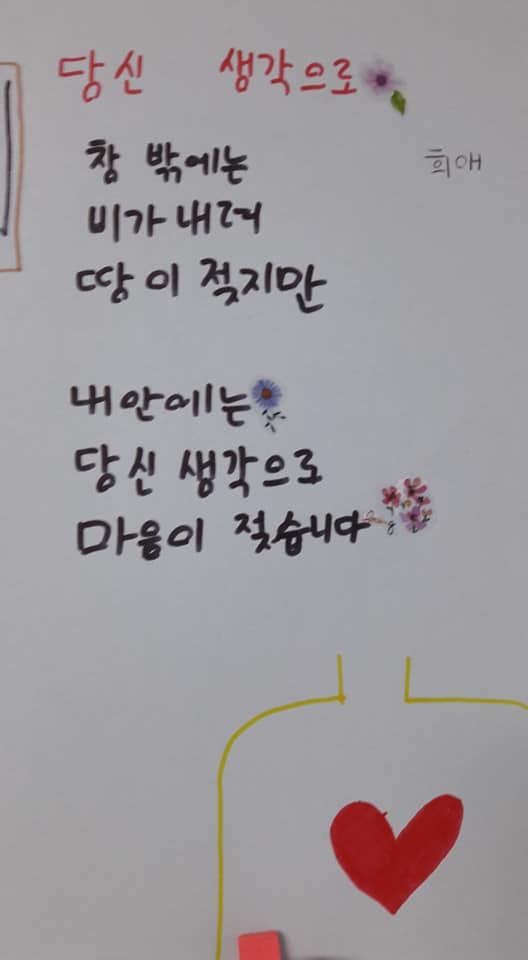 당신 생각으로
희애
창 밖에는
비가 내려
땅이 젖지만
내 안에는
당신 생각으로
마음이 젖습니다